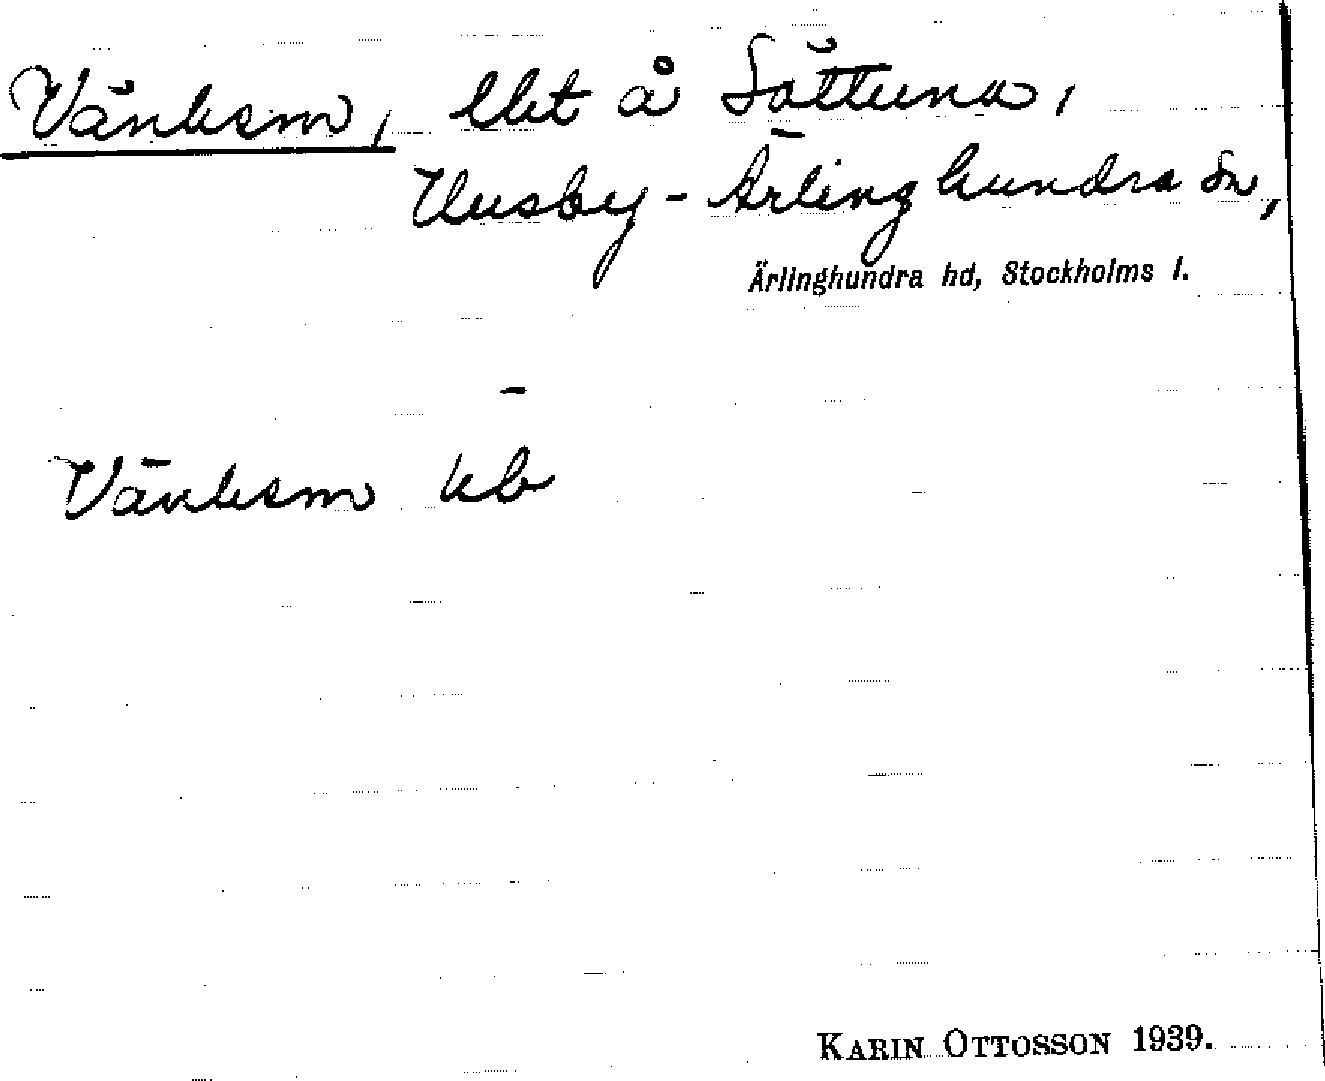 Vänhem, lht å Sättuna,
Husby-Ärlinghundra sn,
Ärlinghundra hd, Stockholms l.
Vänhem kb
KARIN OTTOSSON 1939.